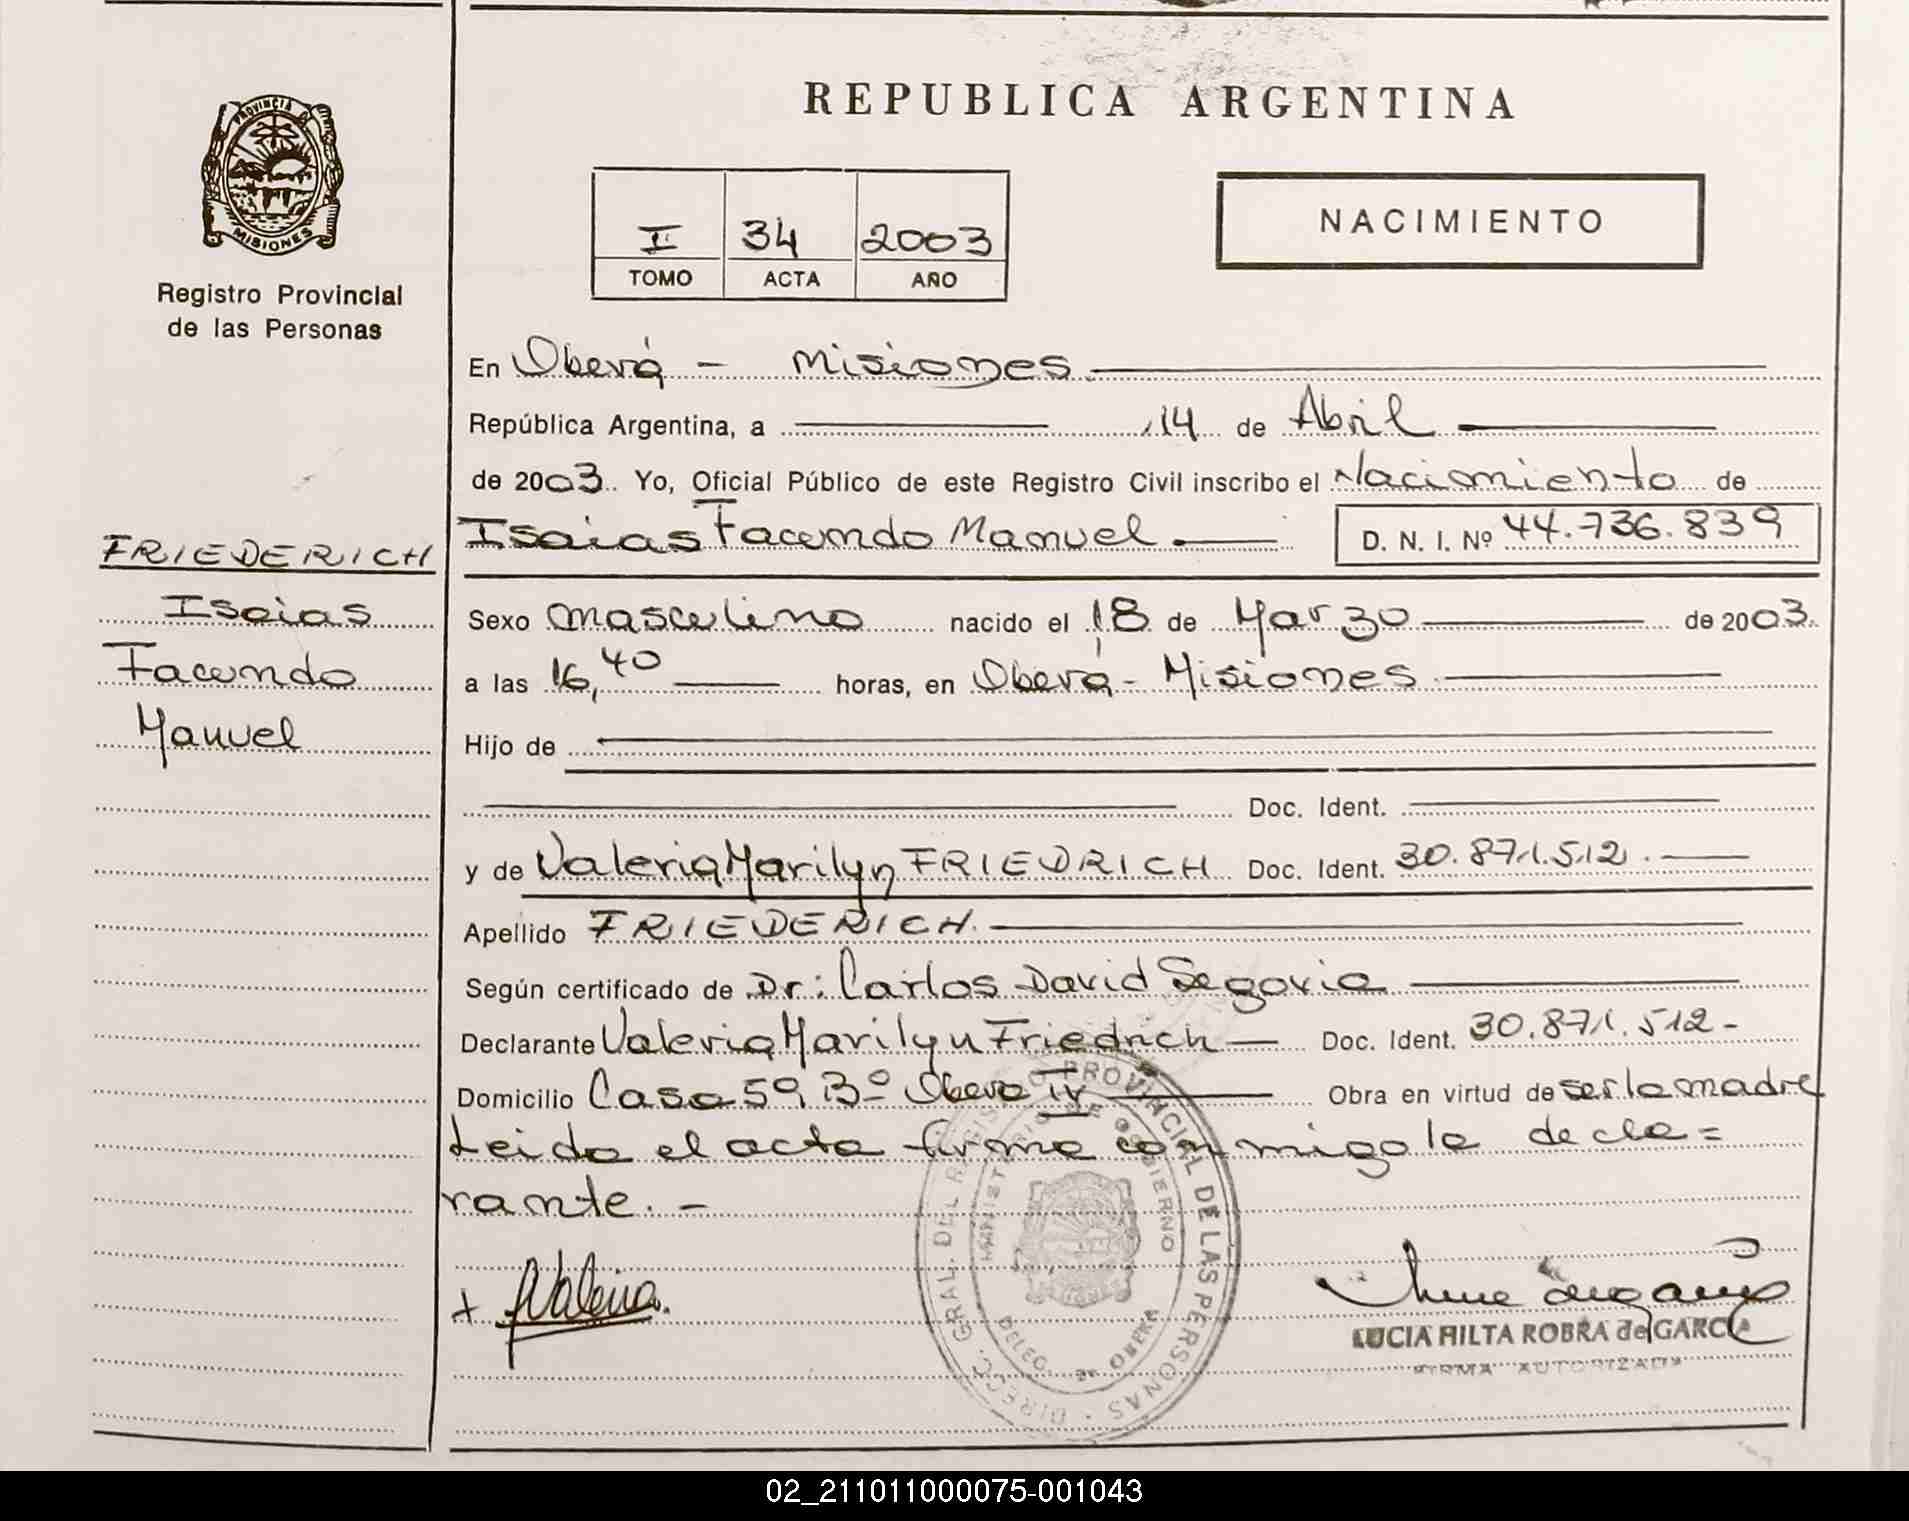 REPUBLICA ARGENTINA
PROVINCIA D
MISIONES
Registro Provincial
de las Personas
I 34 2003
TOMO ACTA AÑO
NACIMIENTO
En Oberá - Misiones
República Argentina, a 14 de Abril
de 2003. Yo, Oficial Público de este Registro Civil inscribo el Nacimiento de
Isaias Facundo Manuel D. N. I. Nº 44.736.839
FRIEDERICH
Isaias
Facundo
Manuel
Sexo masculino nacido el 18 de Marzo de 2003.
a las 16,40 horas, en Oberá - Misiones
Hijo de
Doc. Ident.
y de Valeria Marilyn FRIEDRICH Doc. Ident. 30.871.512.
Apellido FRIEDERICH.
Según certificado de Dr: Carlos David Segovia
Declarante Valeria Marilyn Friedrich Doc. Ident. 30.871.512-
Domicilio Casa 59, Bº Obera IV Obra en virtud de ser la madre
Leida el acta firma conmigo la decla=
rante. -
Valeria.
DIRECC. GRAL. DEL REGISTRO PROVINCIAL DE LAS PERSONAS
MINISTERIO DE GOBIERNO
DELEG. DE OBERA
LUCIA HILTA ROBRA de GARCIA
FIRMA AUTORIZADA
02_211011000075-001043